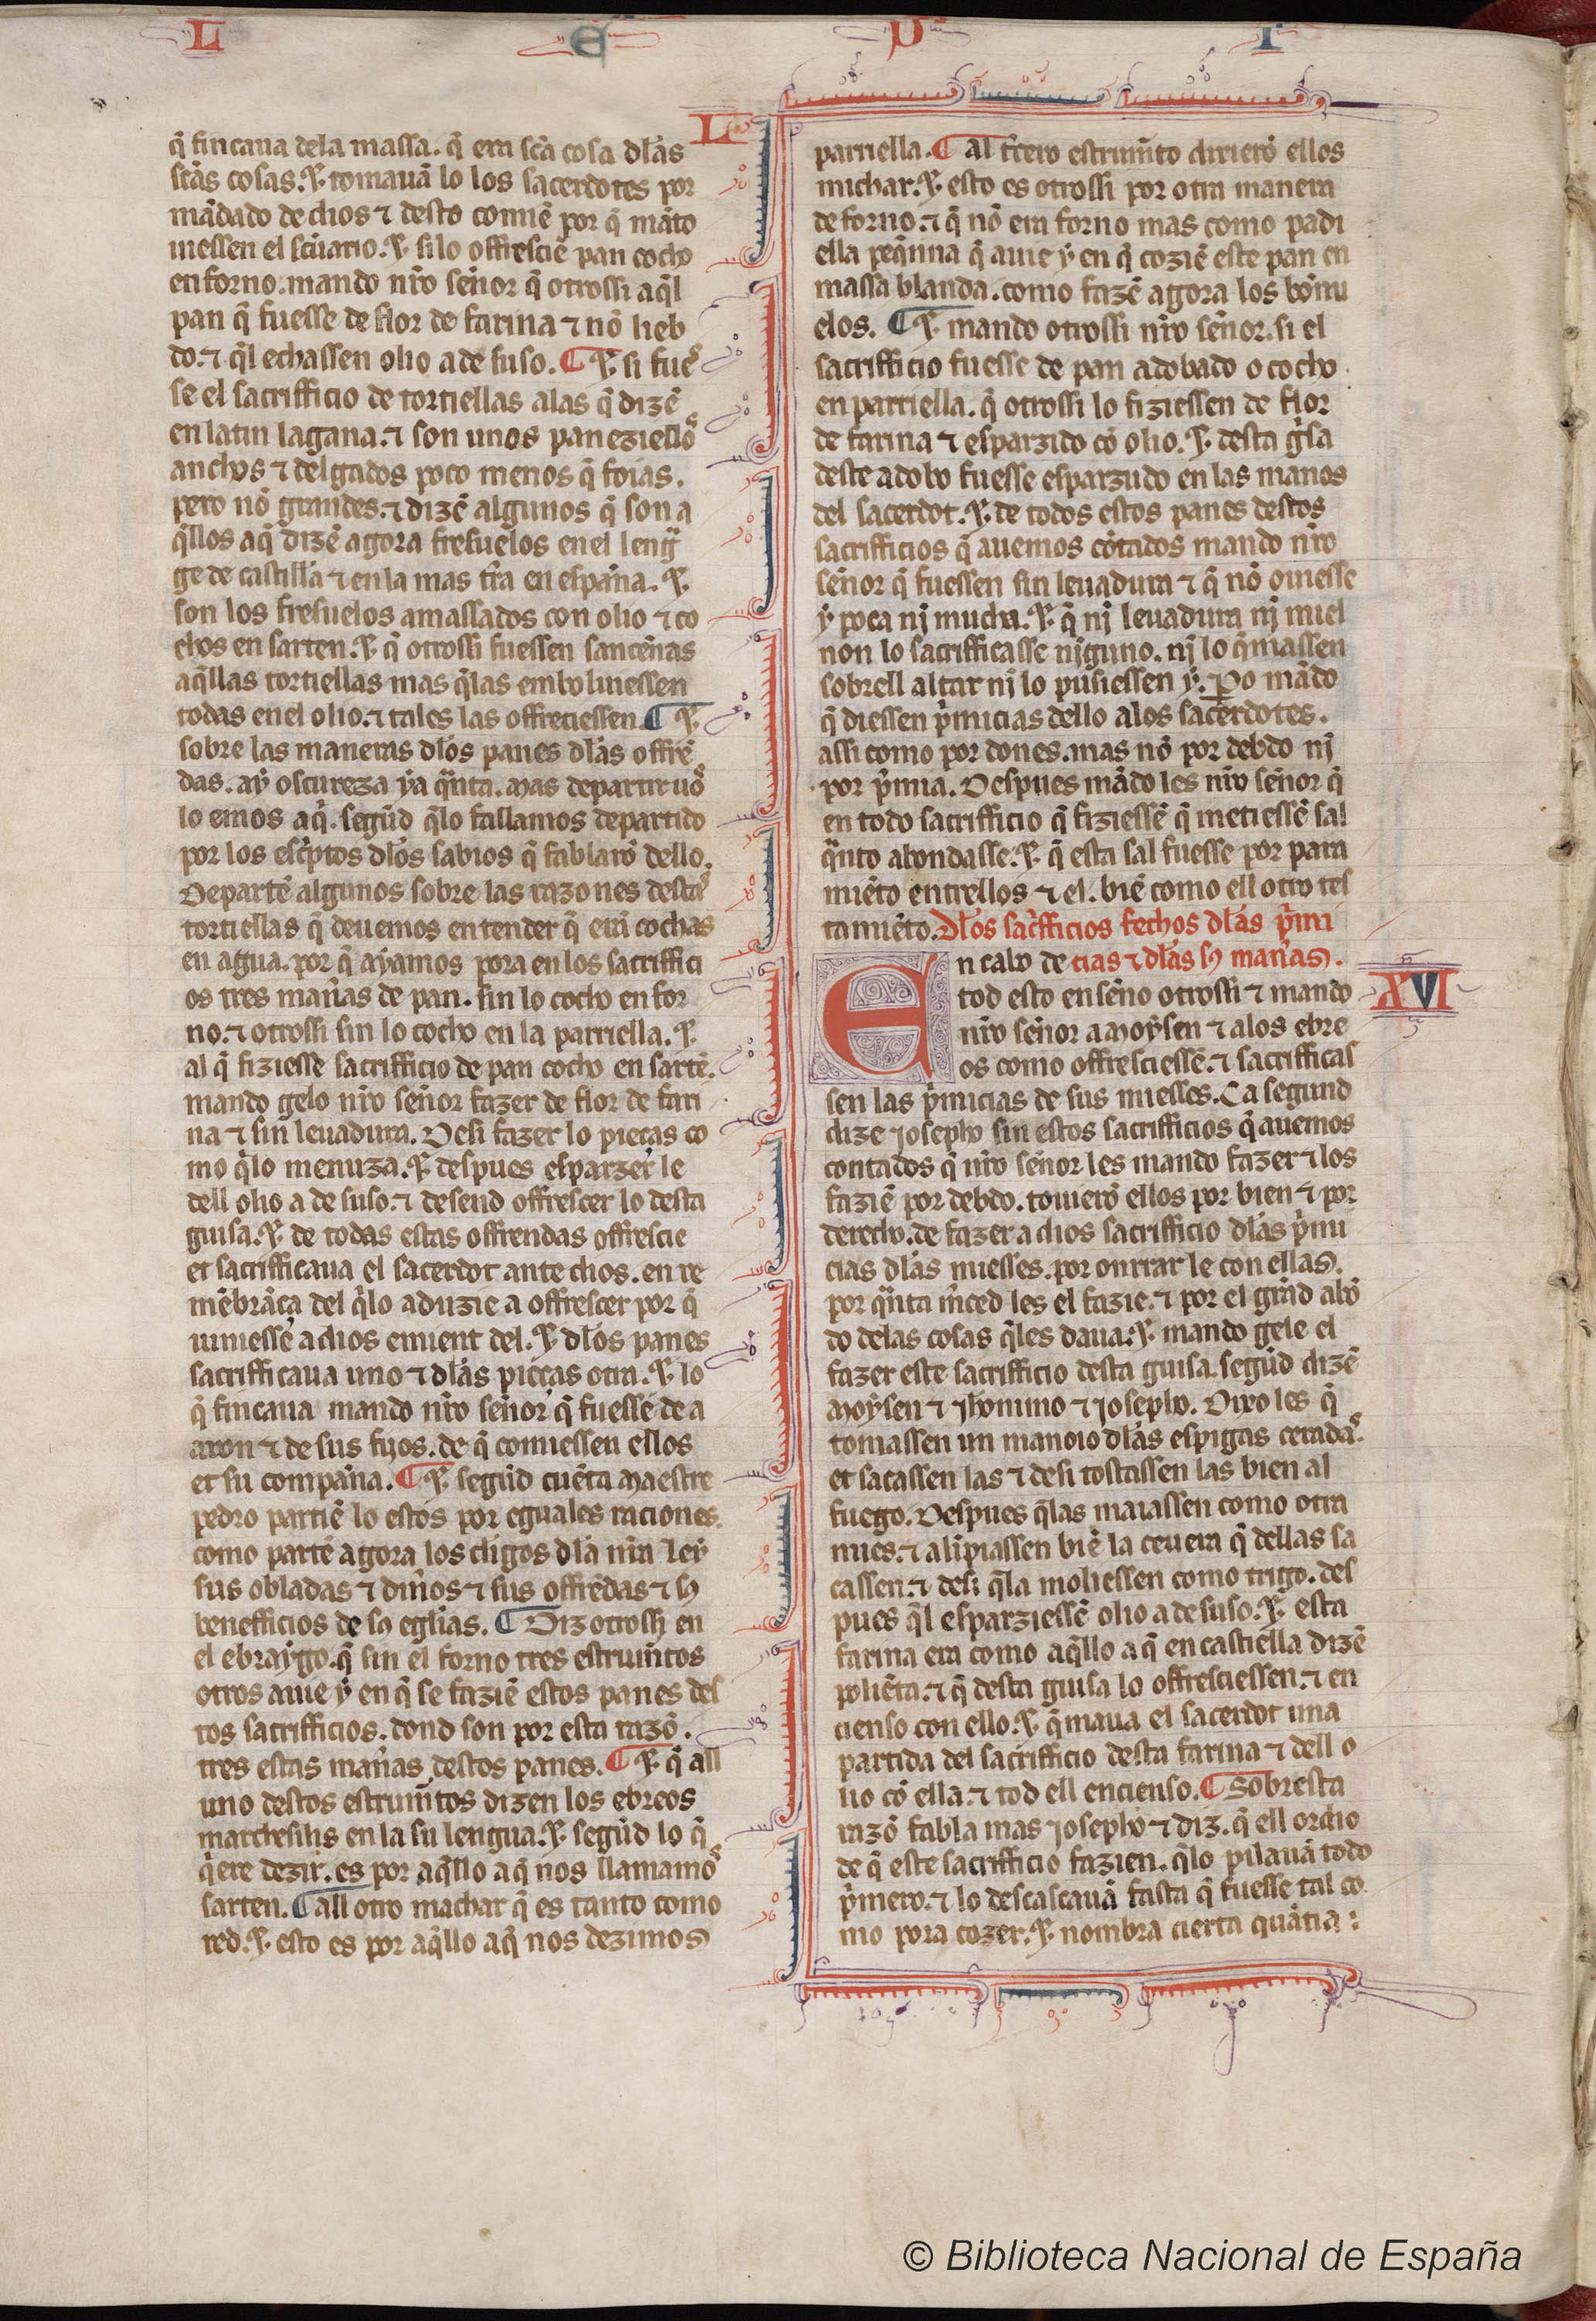 L E U I
q̃ fincaua dela massa. q̃ era sc̃a cosa dl̃as
sc̃as cosas. ⁊ tomauã lo los sacerdotes por
mãdado de dios ⁊ desto comiẽ por q̃ mãto
uiessen el sc̃uario. ⁊ si lo offresciẽ pan cocho
en forno. mando nr̃o sennor q̃ otrossi aq̃l
pan q̃ fuesse de flor de farina ⁊ nõ lieb
do. ⁊ q̃l echassen olio a de suso. ¶ ⁊ si fues
se el sacrifficio de tortiellas alas q̃ dizẽ
en latin lagana. ⁊ son unos paneziellos
anchos ⁊ delgados poco menos q̃ foias.
pero nõ grandes. ⁊ dizẽ algunos q̃ son a
q̃llos aq̃ dizẽ agora fresuelos en el leng̃
ge de castilla ⁊ en la mas tr̃a en espanna. ⁊
son los fresuelos amassados con olio ⁊ co
chos en sarten. ⁊ q̃ otrossi fuessen sancennas
aq̃llas tortiellas mas q̃las emboluiessen
todas en el olio. ⁊ tales las offreciessen. ¶ ⁊
sobre las maneras dl̃os panes dl̃as offrẽ
das. aẏ oscureza ẏa q̃nta. mas departir uos
lo emos aq̃. segũd q̃lo fallamos departido
por los esc̃ptos dl̃os sabios q̃ fablarõ dello.
Departẽ algunos sobre las razones destas
tortiellas q̃ deuemos entender q̃ erã cochas
en agua. por q̃ aẏamos pora en los sacriffici
os tres man̾as de pan. sin lo cocho en for
no. ⁊ otrossi sin lo cocho en la parriella. ⁊
al q̃ fiziesse sacrifficio de pan cocho en sartẽ.
mando gelo nr̃o sennor fazer de flor de fari
na ⁊ sin leuadura. Desi fazer lo pieças co
mo q̃lo menuza. ⁊ despues esparzer le
dell olio a de suso. ⁊ desend offrescer lo desta
guisa. ⁊ de todas estas offrendas offrescie
et sacrifficaua el sacerdot ante dios. en re
mẽbrãça del q̃lo aduzie a offrescer por q̃
uiniesse a dios emient del. ⁊ dl̃os panes
sacrifficaua uno ⁊ dl̃as pieças otra. ⁊ lo
q̃ fincaua mando nr̃o sennor q̃ fuesse de a
aron ⁊ de sus fijos. de q̃ comiessen ellos
et su companna. ¶ ⁊ segũd cuẽta maestre
pedro partiẽ lo estos por eguales raciones.
como partẽ agora los cl̃igos dla nr̃a leẏ
sus obladas ⁊ din̾os ⁊ sus offrẽdas ⁊ sꝯ
benefficios de sꝯ egl̃ias. ¶ Diz otrossi en
el ebraẏgo. q̃ sin el forno tres estrum̃tos
otros auie ẏ en q̃ se faziẽ estos panes des
tos sacrifficios. dond son por esta razõ.
tres estas man̾as destos panes. ¶ ⁊ q̃ all
uno destos estrum̃tos dizen los ebreos
marchesilis en la su lengua. ⁊ segũd lo q̃
q̃ere dezir. es por aq̃llo aq̃ nos llamamos
sarten. ¶ all otro machar q̃ es tanto como
red. ⁊ esto es por aq̃llo aq̃ nos dezimos
parriella. ¶ Al t̾cero estrum̃to dixierõ ellos
michar. ⁊ esto es otrossi por otra manera
de forno. ⁊ q̃ nõ era forno mas como padi
ella peq̃nna q̃ auie ẏ en q̃ coziẽ este pan en
massa blanda. como fazẽ agora los bonnu
elos. ¶ ⁊ mando otrossi nr̃o sennor. si el
sacrifficio fuesse de pan adobado o cocho
en parriella. q̃ otrossi lo fiziessen de flor
de farina ⁊ esparzido cõ olio. ⁊ desta g̃sa
deste adobo fuesse esparzudo en las manos
del sacerdot. ⁊ de todos estos panes destos
sacrifficios q̃ auemos cõtados mando nr̃o
sennor q̃ fuessen sin leuadura ⁊ q̃ nõ ouiesse
ẏ poca nj mucha. ⁊ q̃ nj leuadura nj miel
non lo sacrifficasse njguno. nj lo q̃massen
sobrell altar nj lo pusiessen ẏ. Po mãdo
q̃ diessen p̃micias dello alos sacerdotes.
assi como por dones. mas nõ por debdo nj
por p̃mia. Despues mãdo les nr̃o sennor q̃
en todo sacrifficio q̃ fiziessẽ q̃ metiessẽ sal
q̃nto abondasse. ⁊ q̃ esta sal fuesse por para
miẽto entrellos ⁊ el. biẽ como ell otro tes
tamiẽto. Dl̃os sac̃fficios fechos dl̃as p̃mi
cias ⁊ dl̃as sꝯ man̾as.
XVI
En cabo de
tod esto ensenno otrossi ⁊ mando
nr̃o sennor a moẏsen ⁊ alos ebre
os como offresciessẽ. ⁊ sacrifficas
sen las p̃micias de sus miesses. Ca segund
dize iosepho sin estos sacrifficios q̃ auemos
contados q̃ nr̃o sennor les mando fazer ⁊ los
faziẽ por debdo. touierõ ellos por bien ⁊ por
derecho. de fazer a dios sacrifficio dl̃as p̃mi
cias dl̃as miesses. por onrrar le con ellas.
por q̃nta m̃ced les el fazie. ⁊ por el grãd abõ
do delas cosas q̃les daua. ⁊ mando gele el
fazer este sacrifficio desta guisa. segũd dizẽ
moẏsen ⁊ jheronimo ⁊ josepho. Dixo les q̃
tomassen un manoio dl̃as espigas cerradas.
et sacassen las ⁊ desi tostassen las bien al
fuego. Despues q̃las maiassen como otra
mies. ⁊ alipiassen biẽ la ceuera q̃ dellas sa
cassen. ⁊ desi q̃la moliessen como trigo. des
pues q̃l esparziessẽ olio a de suso. ⁊ esta
farina era como aq̃llo aq̃ en castiella dizẽ
poliẽta. ⁊ q̃ desta guisa lo offresciessen. ⁊ en
cienso con ello. ⁊ q̃maua el sacerdot una
partida del sacrifficio desta farina ⁊ dell o
lio cõ ella. ⁊ tod ell encienso. ¶ Sobresta
razõ fabla mas iosepho ⁊ diz. q̃ ell ordio
de q̃ este sacrifficio fazien. q̃lo pilauã todo
p̃mero. ⁊ lo descascauã fasta q̃ fuesse tal co
mo pora cozer. ⁊ nombra cierta quãtia:
© Biblioteca Nacional de España